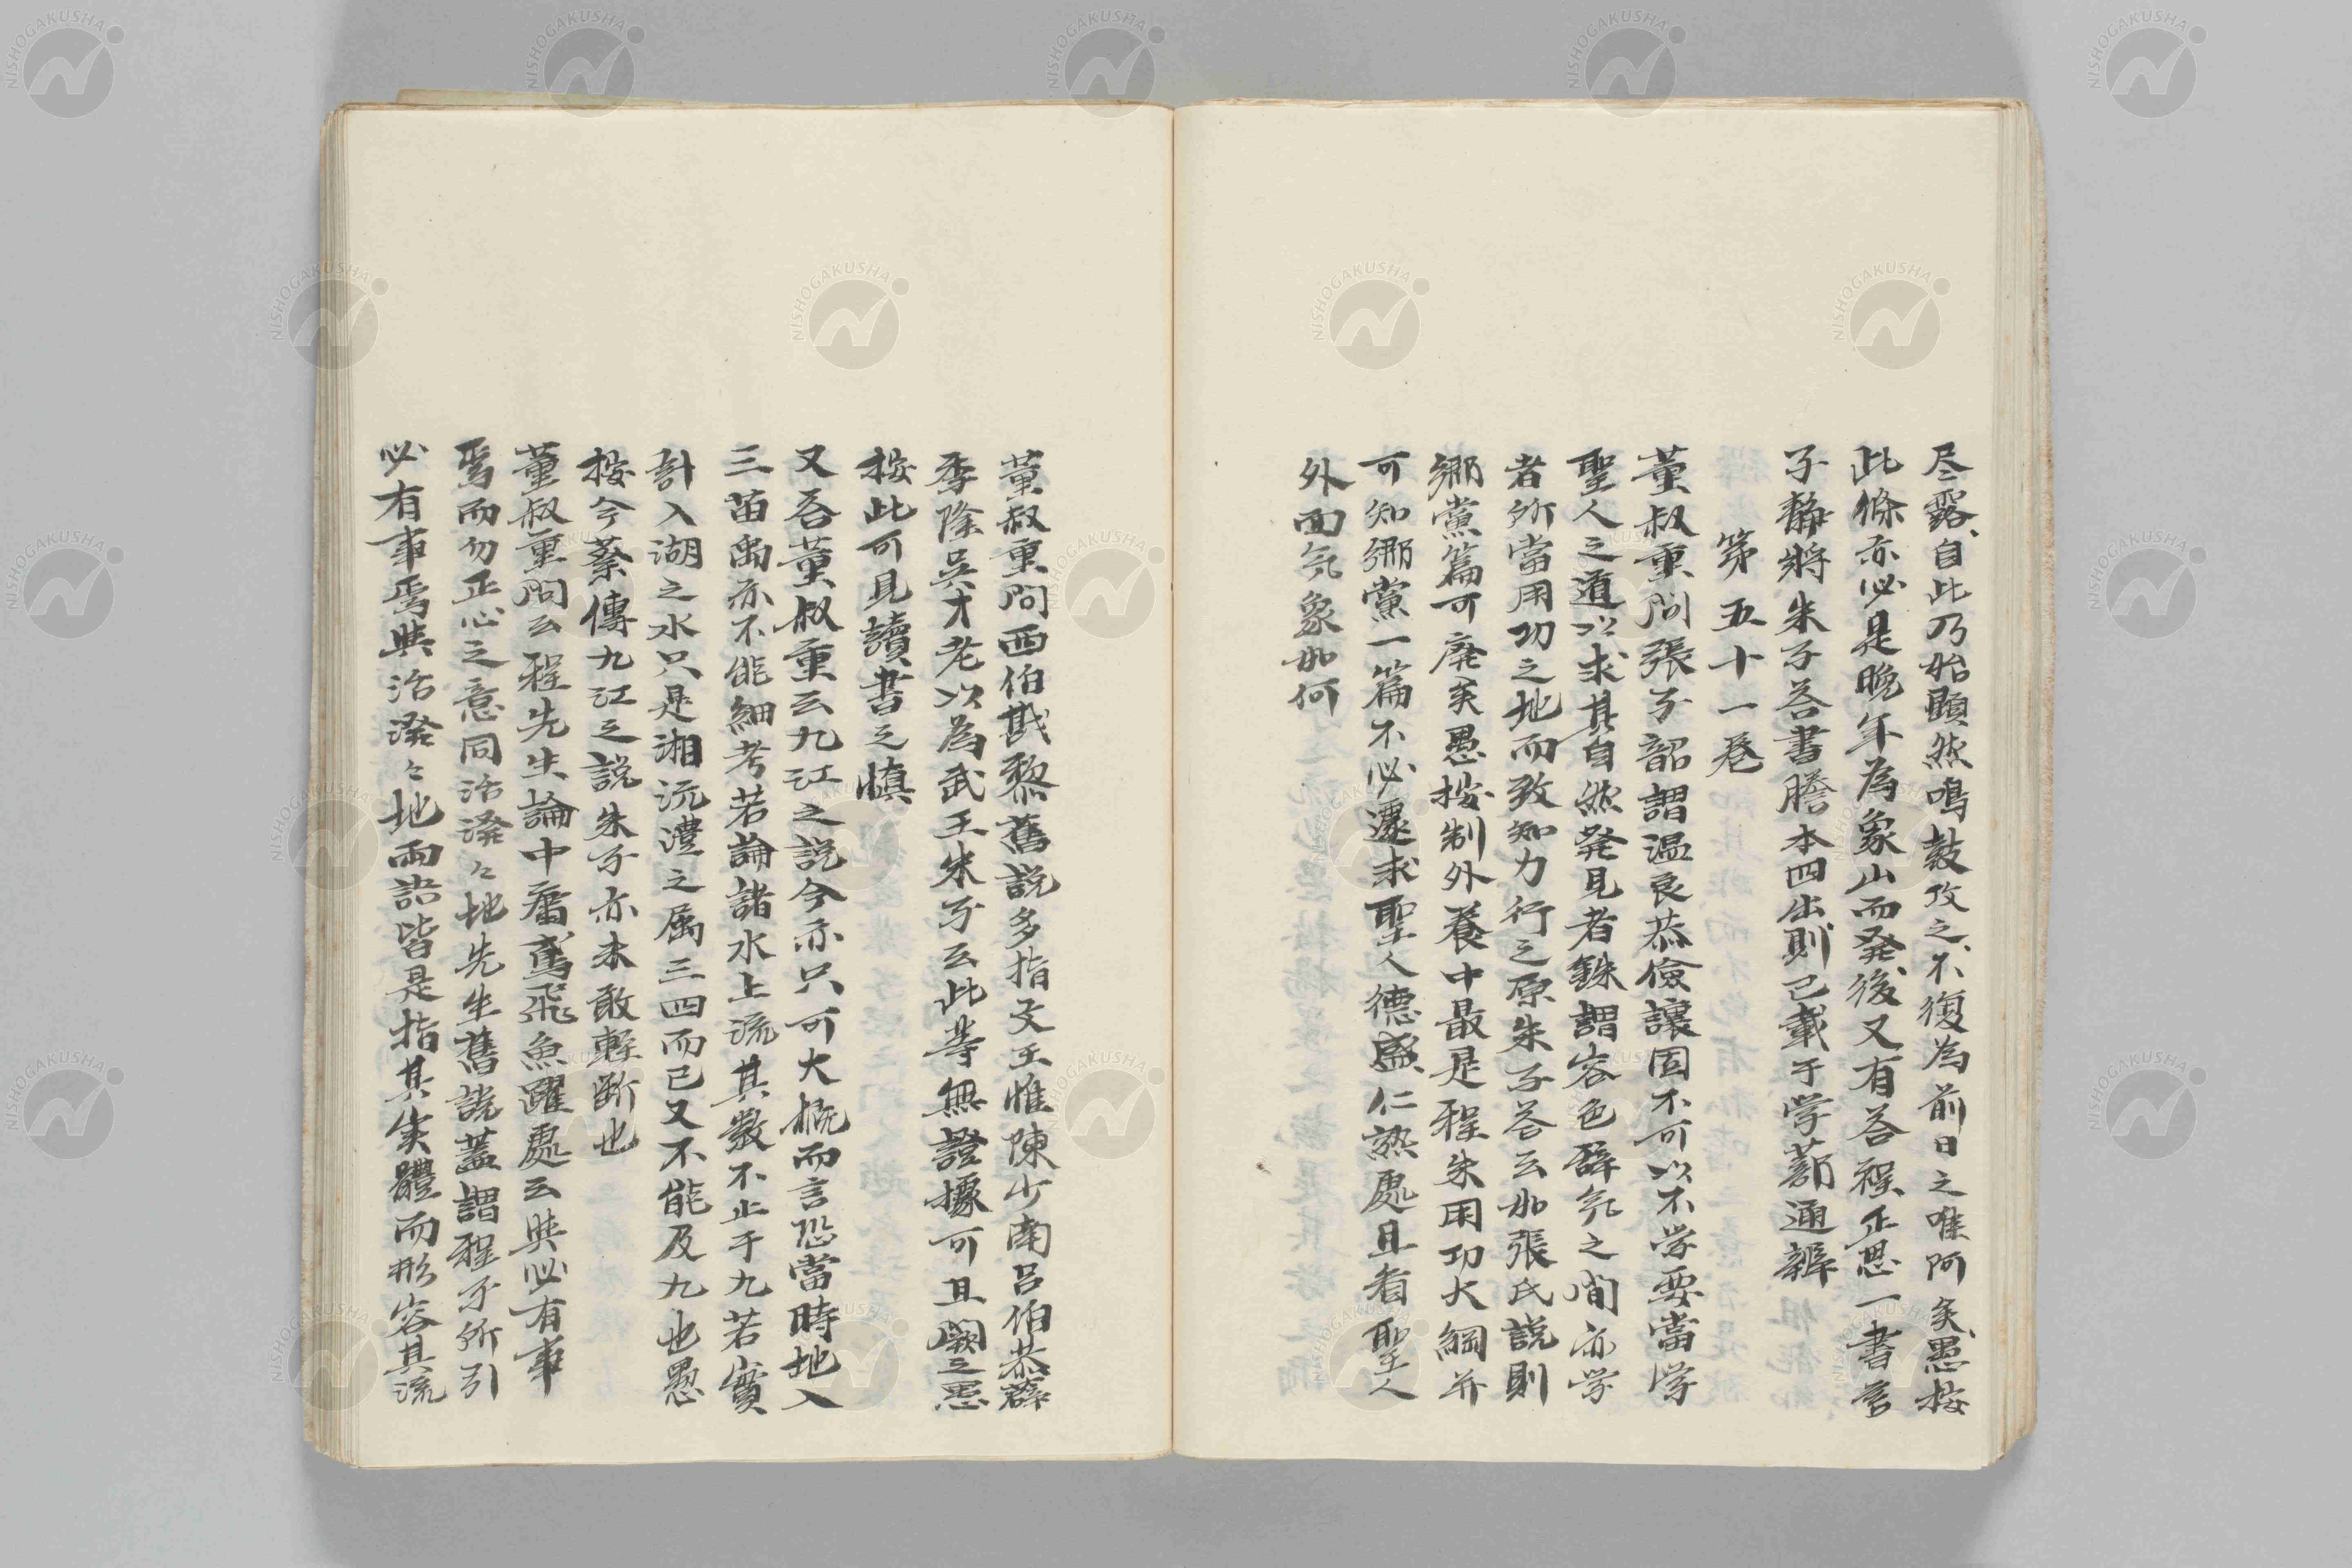 尽露、自此乃始顕然鳴鼓攻之、不復為前日之唯阿矣、愚按
此條亦必是晚年為象山而発後又有答程正思一書言
子静將朱子答書謄本四出則已載于学蔀通辨
第五十一卷
董叔重問張子韶謂温良恭儉讓固不可以不学要當学
聖人之道以求其自然発見者銖謂容色辞気之間亦学
者所當用功之地而致知力行之原朱子答云如張氏説則
郷黨篇可廃矣愚按制外養中最是程朱用功大綱并
可知郷黨一篇不必遽求聖人徳盛仁熟處且看聖人
外面気象如何
董叔重問西伯戡黎舊説多指文王惟陳少南呂伯恭薛
季隆呉才老以為武王朱子云此等無證據可且闕之愚
按此可見讀書之慎
又答董叔重云九江之説今亦只可大概而言恐當時地入
三苗禹亦不能細考若論諸水上流其數不止于九若實
計入湖之水只是湘沅澧之属三四而已又不能及九也愚
按今蔡傳九江之説朱子亦未敢輕断也
董叔重問云程先生論中庸鳶飛魚躍處云與必有事
焉而勿正心之意同活潑々地先生舊説蓋謂程子所引
必有事焉與活潑々地両語皆是指其実體而形容其流
NISHOGAKUSHA